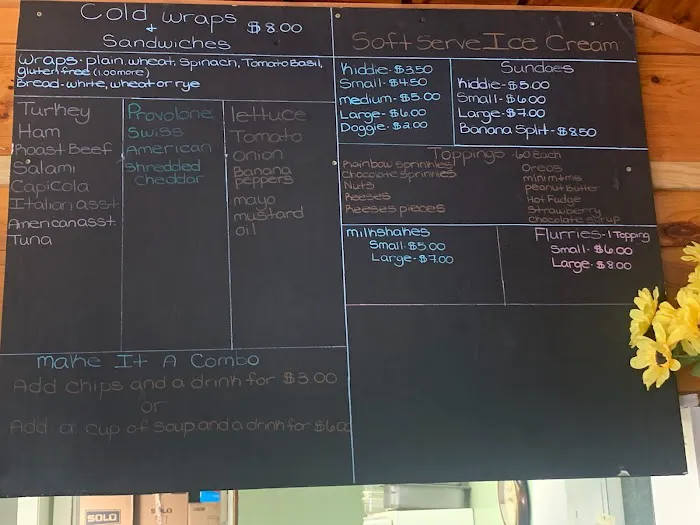 Cold wraps
+
Sandwiches
$8.00
Wraps - plain, wheat, Spinach, Tomato Basil,
gluten free (1.00 more)
Bread - white, wheat or rye
Turkey
Ham
Roast Beef
Salami
Capicola
Italian asst
American asst.
Tuna
Provolone
Swiss
American
Shredded
cheddar
lettuce
Tomato
onion
Banana
peppers
mayo
mustard
oil
make It A Combo
Add chips and a drink for $3.00
or
Add a cup of soup and a drink for $6.00
Soft Serve Ice Cream
Kiddie - $3.50
Small - $4.50
medium - $5.00
Large - $6.00
Doggie - $2.00
Sundaes
Kiddie - $5.00
Small - $6.00
Large - $7.00
Banana Split - $8.50
Toppings - .60 Each
Rainbow Sprinkles
Chocolate Sprinkles
Nuts
Reeses
Reeses pieces
Oreos
mini m+ms
peanut butter
Hot Fudge
Strawberry
chocolate syrup
milkshakes
Small - $5.00
Large - $7.00
Flurries - 1 Topping
Small - $6.00
Large - $8.00
SOLO